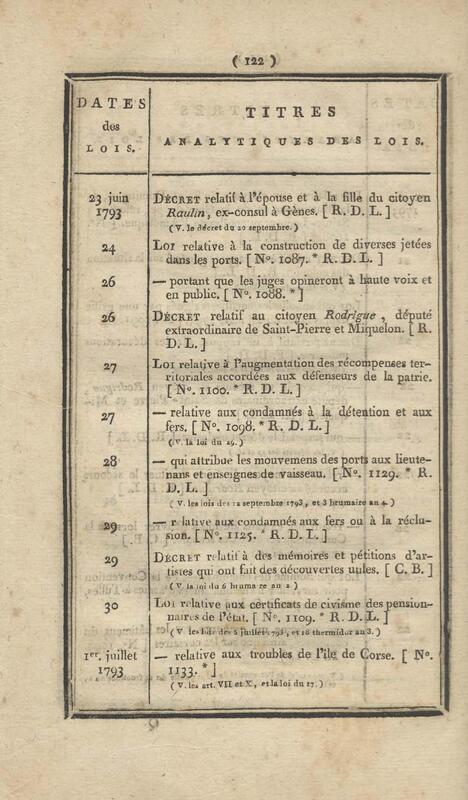 ( 122 )
DATES
des
LOIS.
TITRES
ANALYTIQUES DES LOIS.
23 juin
1793
DÉCRET relatif à l'épouse et à la fille du citoyen
Raulin, ex-consul à Gènes. [ R. D. L. ]
( V. le décret du 20 septembre. )
24
LOI relative à la construction de diverses jetées
dans les ports. [ N°. 1087. * R. D. L. ]
26
— portant que les juges opineront à haute voix et
en public. [ N°. 1088. * ]
26
DÉCRET relatif au citoyen Rodrigue, député
extraordinaire de Saint-Pierre et Miquelon. [ R.
D. L. ]
27
LOI relative à l'augmentation des récompenses ter-
ritoriales accordées aux défenseurs de la patrie.
[ N°. 1100. * R. D. L. ]
27
— relative aux condamnés à la détention et aux
fers. [ N°. 1098. * R. D. L. ]
( V. la loi du 29. )
28
— qui attribue les mouvemens des ports aux lieute-
nans et enseignes de vaisseau. [ N°. 1129. * R.
D. L. ]
( V. les lois des 12 septembre 1793, et 3 brumaire an 4. )
29
— relative aux condamnés aux fers ou à la réclu-
sion. [ N°. 1125. * R. D. L. ]
29
DÉCRET relatif à des mémoires et pétitions d'ar-
tistes qui ont fait des découvertes utiles. [ C. B. ]
( V. la loi du 6 brumaire an 2. )
30
LOI relative aux certificats de civisme des pension-
naires de l'état. [ N°. 1109. * R. D. L. ]
( V. les lois des 5 juillet 1793, et 18 thermidor an 3. )
1er. juillet
1793
— relative aux troubles de l'île de Corse. [ N°.
1133. * ]
( V. les art. VII et X, et la loi du 17. )